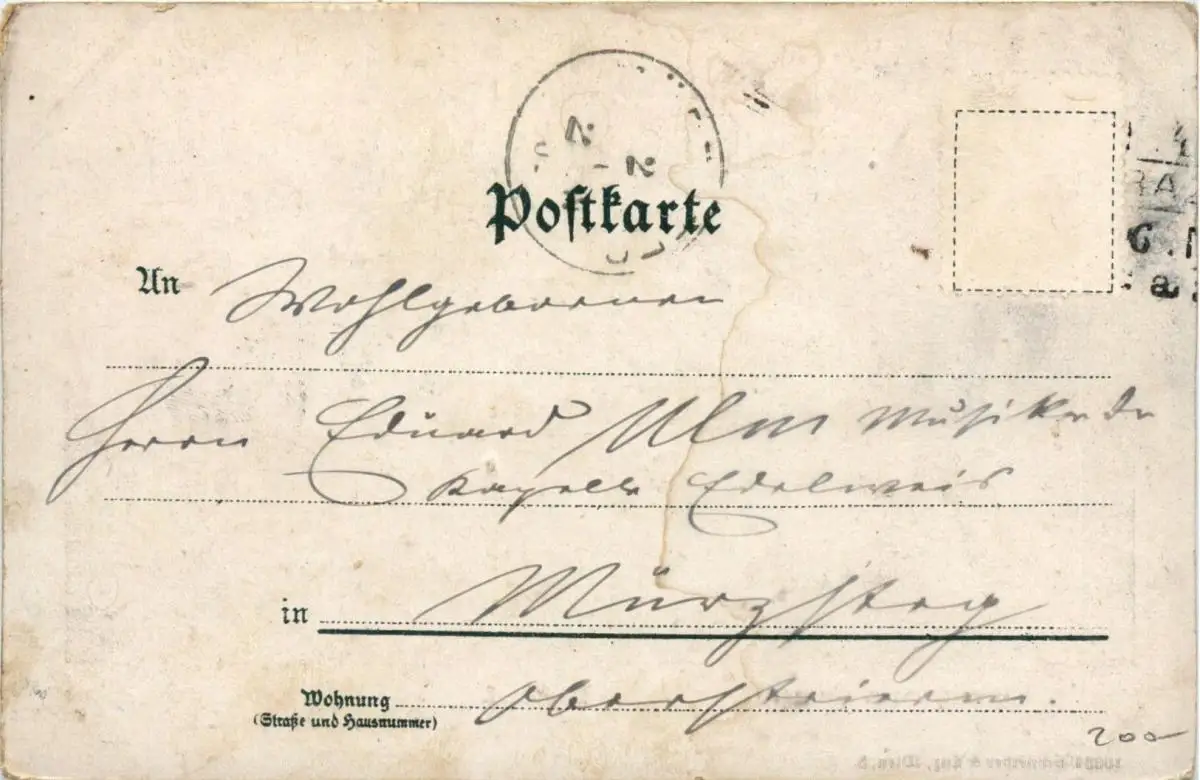 Postkarte
An Wohlgebornen
Herrn Eduard Ulm Musiker de
Kapelle Edelweis
in Mürzsteg
Wohnung Obersteierm.
(Straße und Hausnummer)
200-